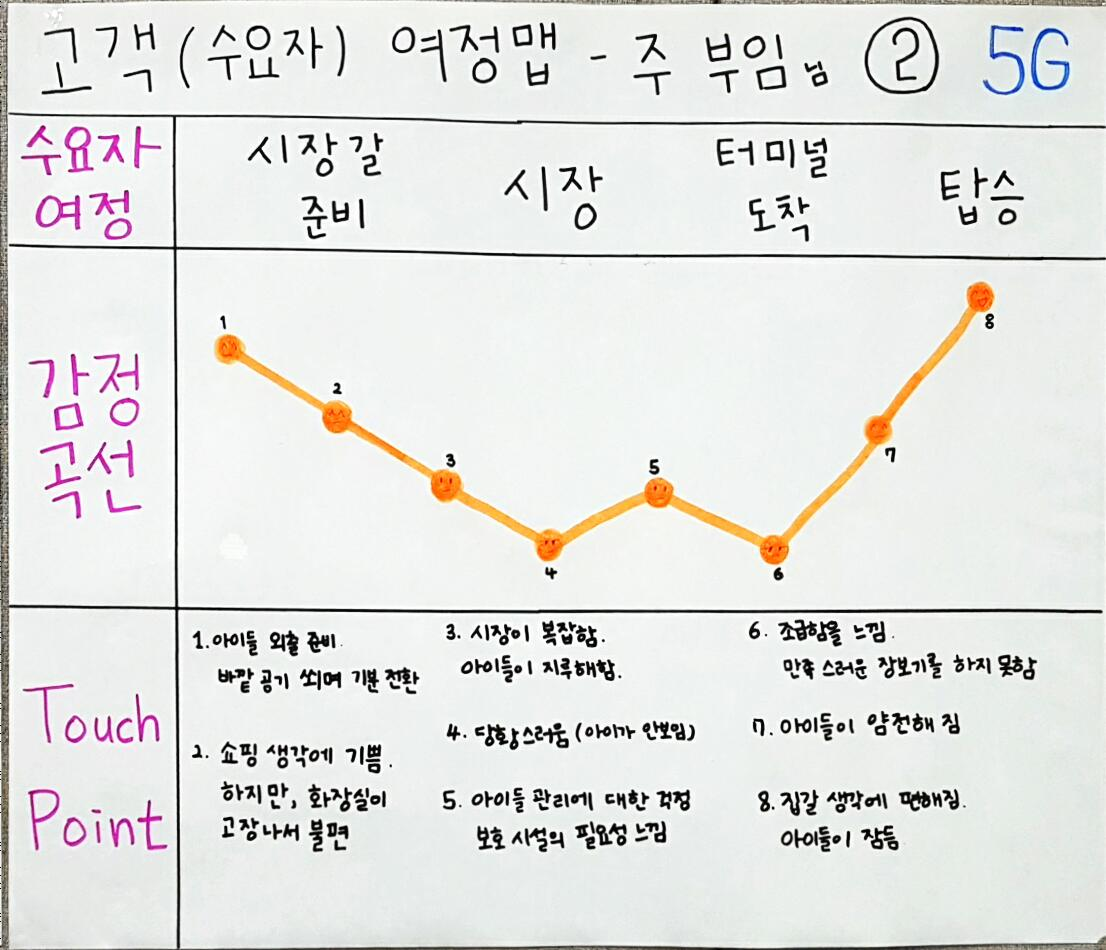 고객(수요자) 여정맵 - 주 부임님 ② 5G
수요자
여정
시장 갈
준비
시장
터미널
도착
탑승
감정
곡선
1
2
3
4
5
6
7
8
Touch
Point
1. 아이들 외출 준비.
바깥 공기 쐬며 기분 전환
2. 쇼핑 생각에 기쁨.
하지만, 화장실이
고장나서 불편
3. 시장이 복잡함.
아이들이 지루해함.
4. 당황스러움 (아이가 안보임)
5. 아이들 관리에 대한 걱정
보호 시설의 필요성 느낌
6. 조급함을 느낌.
만족 스러운 장보기를 하지 못함
7. 아이들이 얌전해 짐
8. 집갈 생각에 편해짐.
아이들이 잠듬